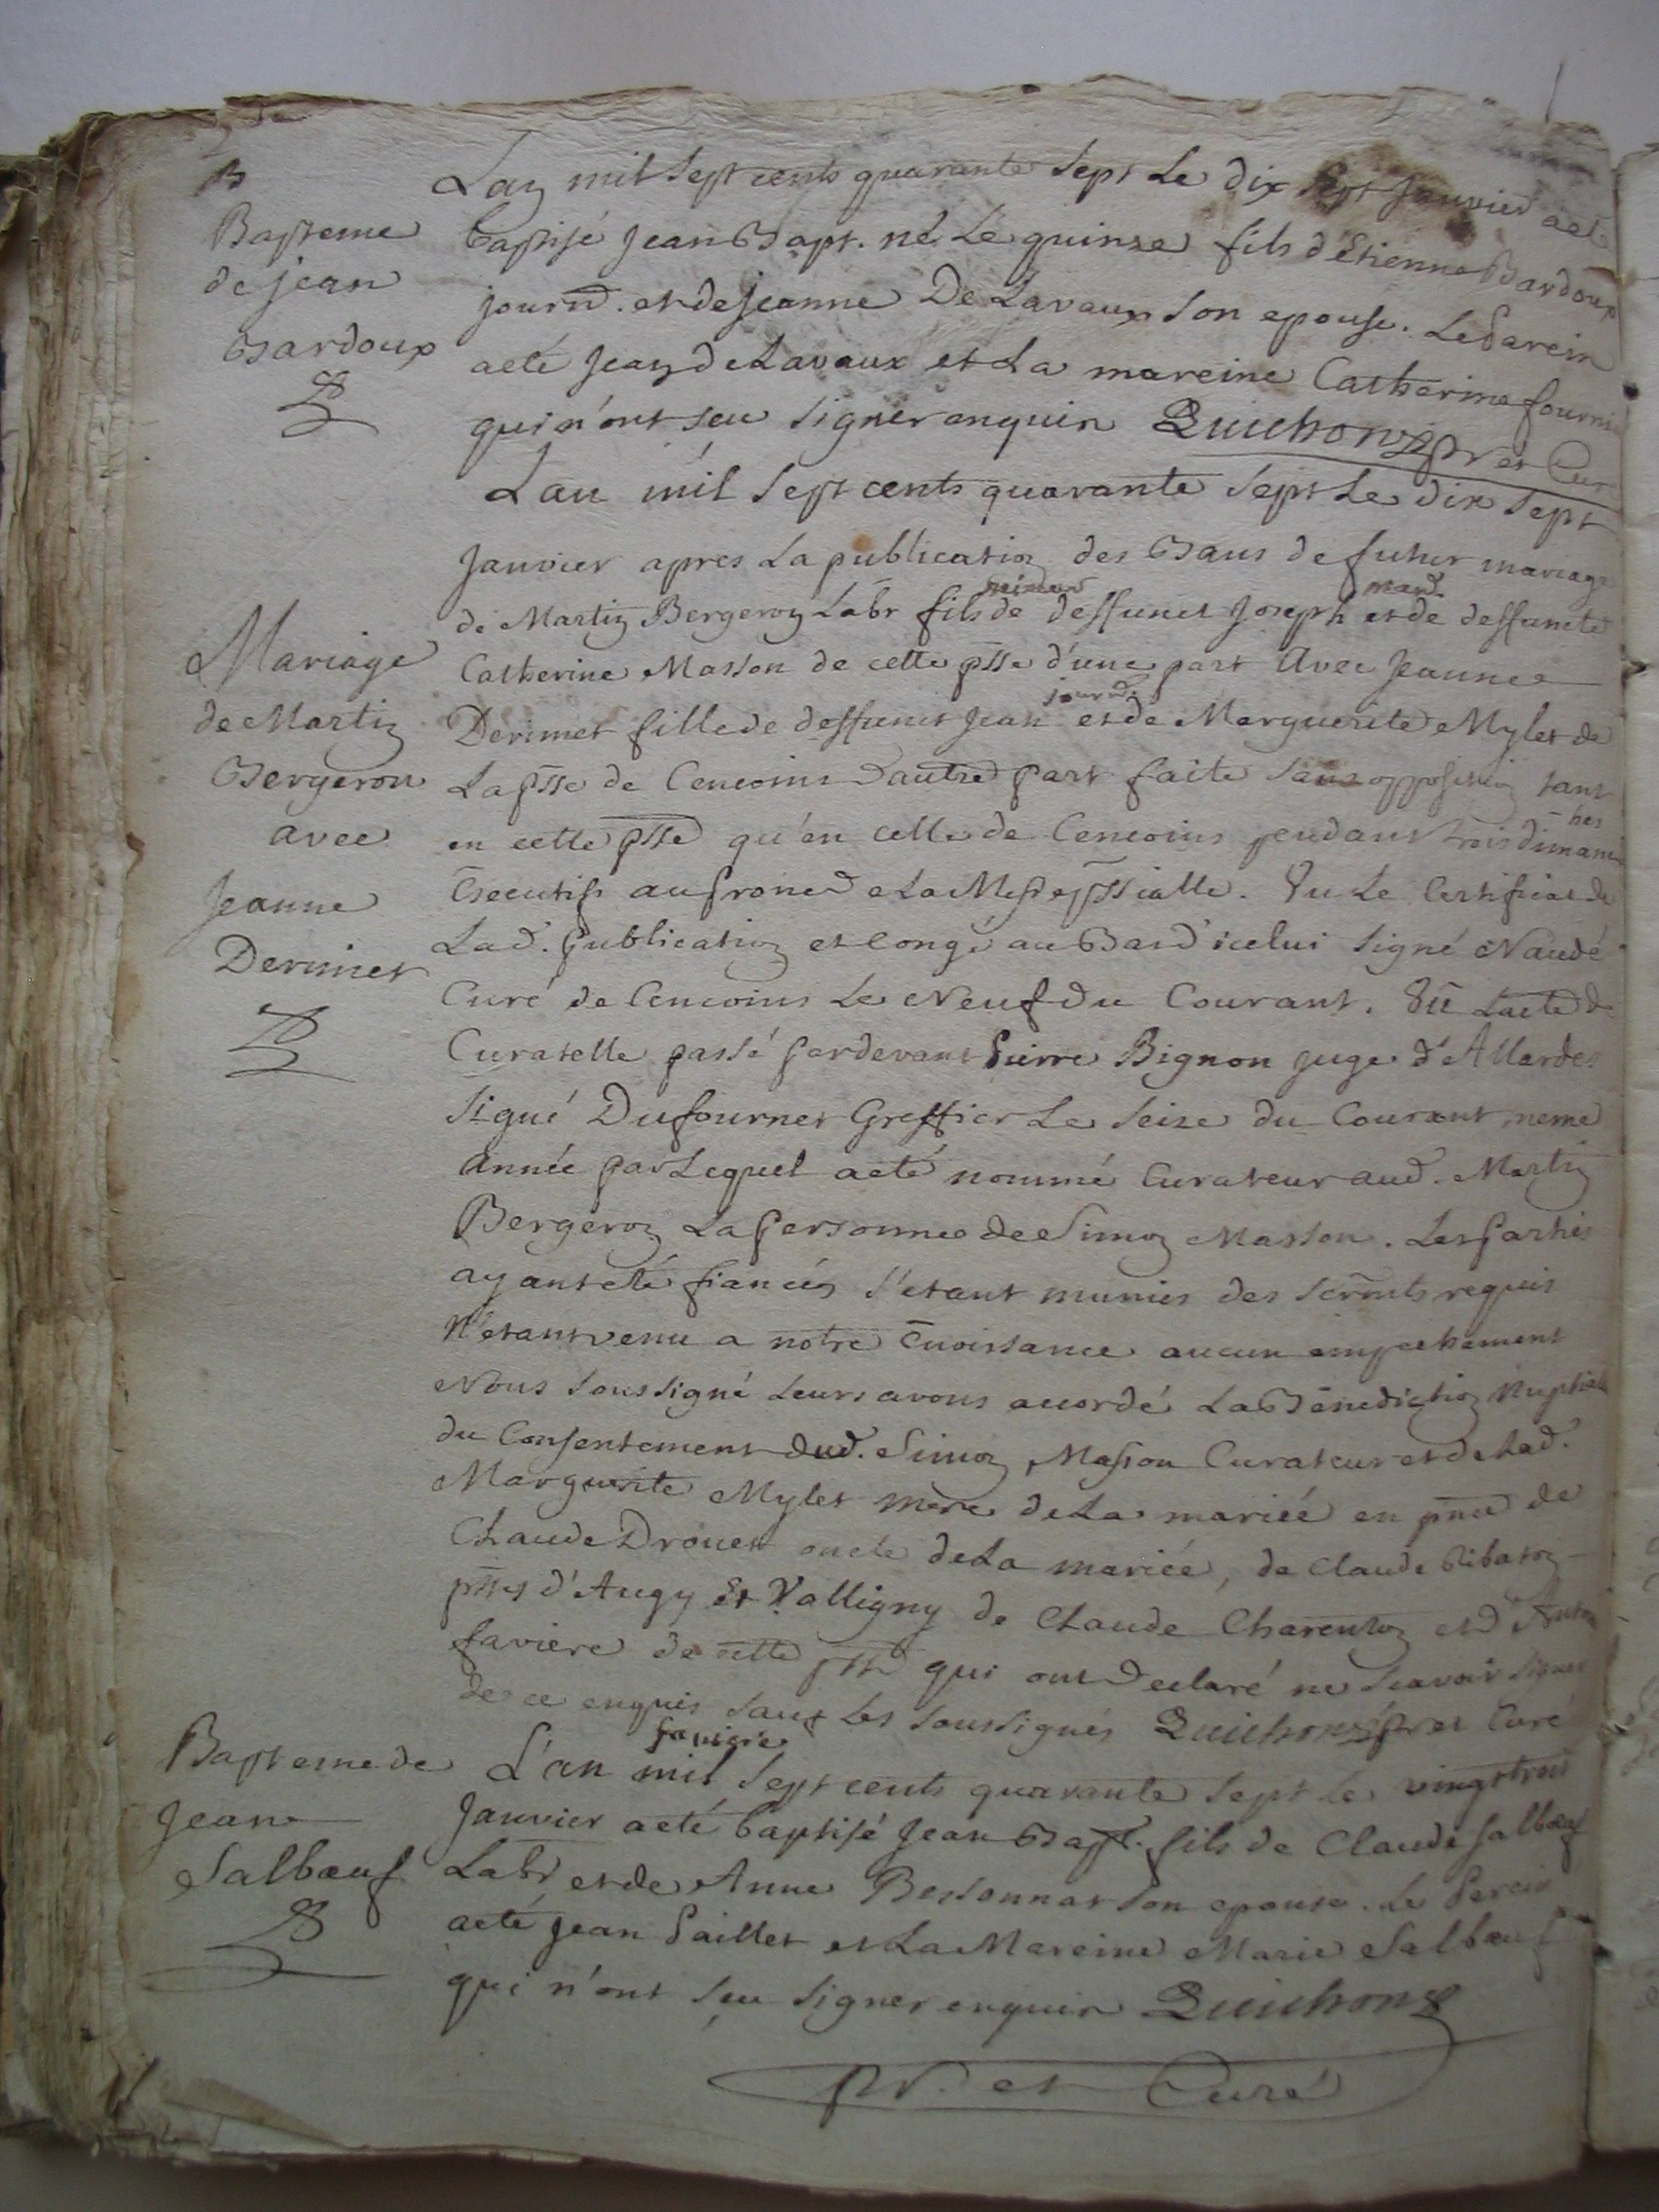 B
Bapteme
de jean
Bardoux
Lan mil sept cents quarante sept Le dix sept janvier aeté
baptisé jean Bapt. né Le quinze fils d'Etienne Bardoux
journ. et de jeanne De Lavaux son epouse. Le Parein
aeté jean de Lavaux et La mareine Catherine fourni
qui n'ont seu signer enquis Quichon pr et Cur
Mariage
de Martin
Bergeron
avec
Jeanne
Derimet
Lan mil sept cents quarante sept Le dix sept
Janvier apres La publication des Bans de futur mariage
de Martin Bergeron Labr fils de deffunct Joseph mard. et de deffuncte
Catherine Masson de cette psse d'une part Avec Jeanne
Derimet fille de deffunct Jean journ. et de Marguerite Mylet de
La psse de Cencoins dautre part faite sans opposition tant
en cette psse qu'en celle de Cencoins pendant trois dimanches
csecutifs au prone de La Messe pssialle. Vu Le Certificat de
Lad. Publication et congé au Bas d'icelui signé Naudé
Curé de Cencoins Le Neuf du Courant. Vu Lacte de
Curatelle passé Pardevant Pierre Bignon juge d'Allarde
signé Dufournet Greffier Le seize du Courant meme
Année par Lequel aeté nommé Curateur aud. Martin
Bergeron La Personne de Simon Masson. Les Parties
ayant eté fiancés s'etant munies des scrmts requis
N'etant venu a notre cnoissance aucun empechement
Nous soussigné Leurs avons accordé La Bénédiction Nuptiale
du Consentement dud. Simon Masson Curateur et de Lad.
Marguerite Mylet mere de La mariée en pnce de
Claude Drouet oncle de La mariée, de Claude Ribaton
psses d'Augy Et Valligny de Claude Charenton et d'Anto
faviere de cette psse qui ont Declaré ne scavoir signer
de ce enquis sauf Les soussignés Quichon pr et Curé
faviere
Bapteme de
Jean
Salbœuf
L'an mil sept cents quarante sept Le vingt trois
Janvier aeté baptisé Jean Bapt. fils de Claude Salbœuf
Labr et de Anne Bessonnat son epouse. Le Parein
aeté Jean Paillet et La Mareine Marie Salbœuf
qui n'ont sçu signer enquis Quichon
pr. et Curé